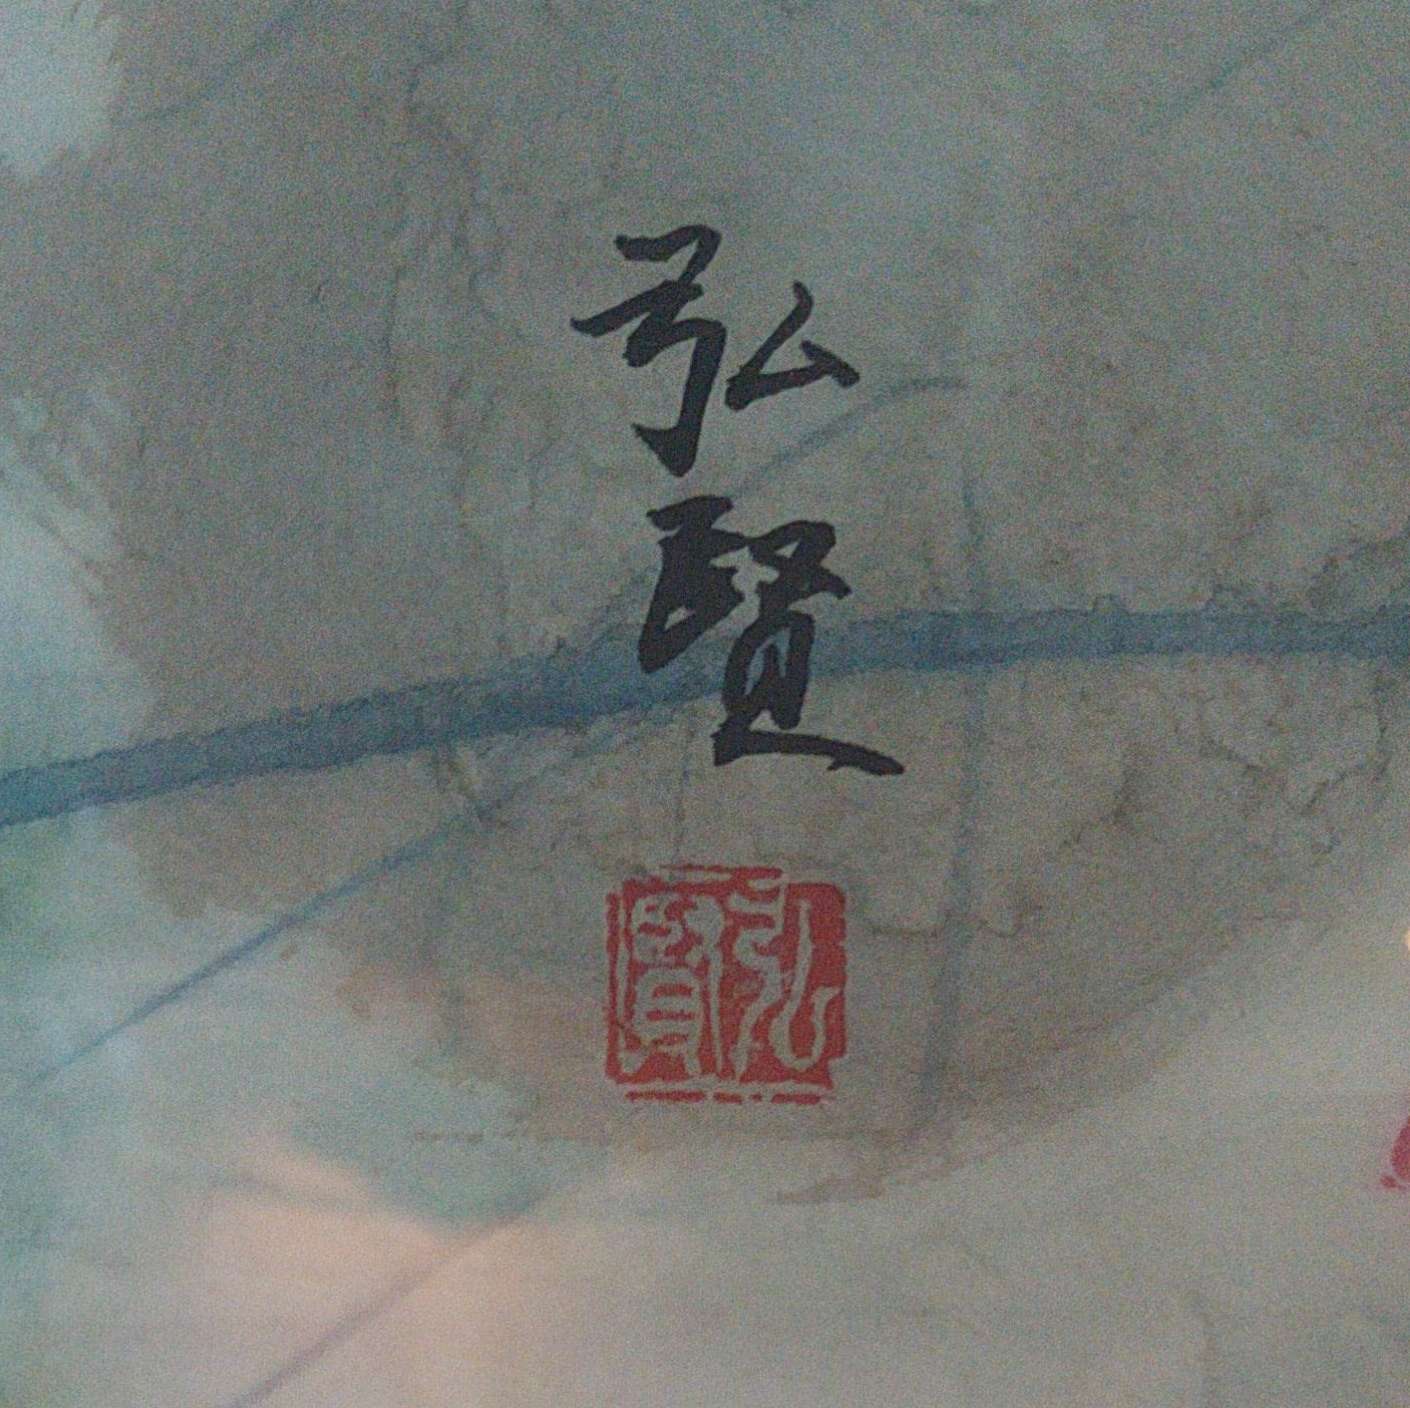 弘賢
弘賢